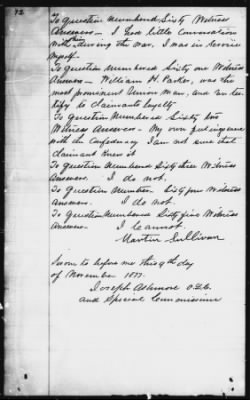 72
To Question Numbered Sixty Witness
Answers - I had little Conversation
with him during the War. I was in Service
Myself.
To Question Numbered Sixty one Witness
Answers - William H. Parker, was the
most prominent Union Man, and can tes-
tify to claimants loyalty
To Question Numbered Sixty two
Witness Answers - My own
with the Confederacy I am not sure that
claimant knew it
To Question Numbered Sixty three Witness
Answers. I do not.
To Question Number Sixty four Witness
answers. I do not.
To Question Numbered Sixty five Witness
Answers - I cannot.
Martin Sullivan
Sworn to before me this 9th day
of November 1877.
Joseph Ashmore
and Special Commissioner